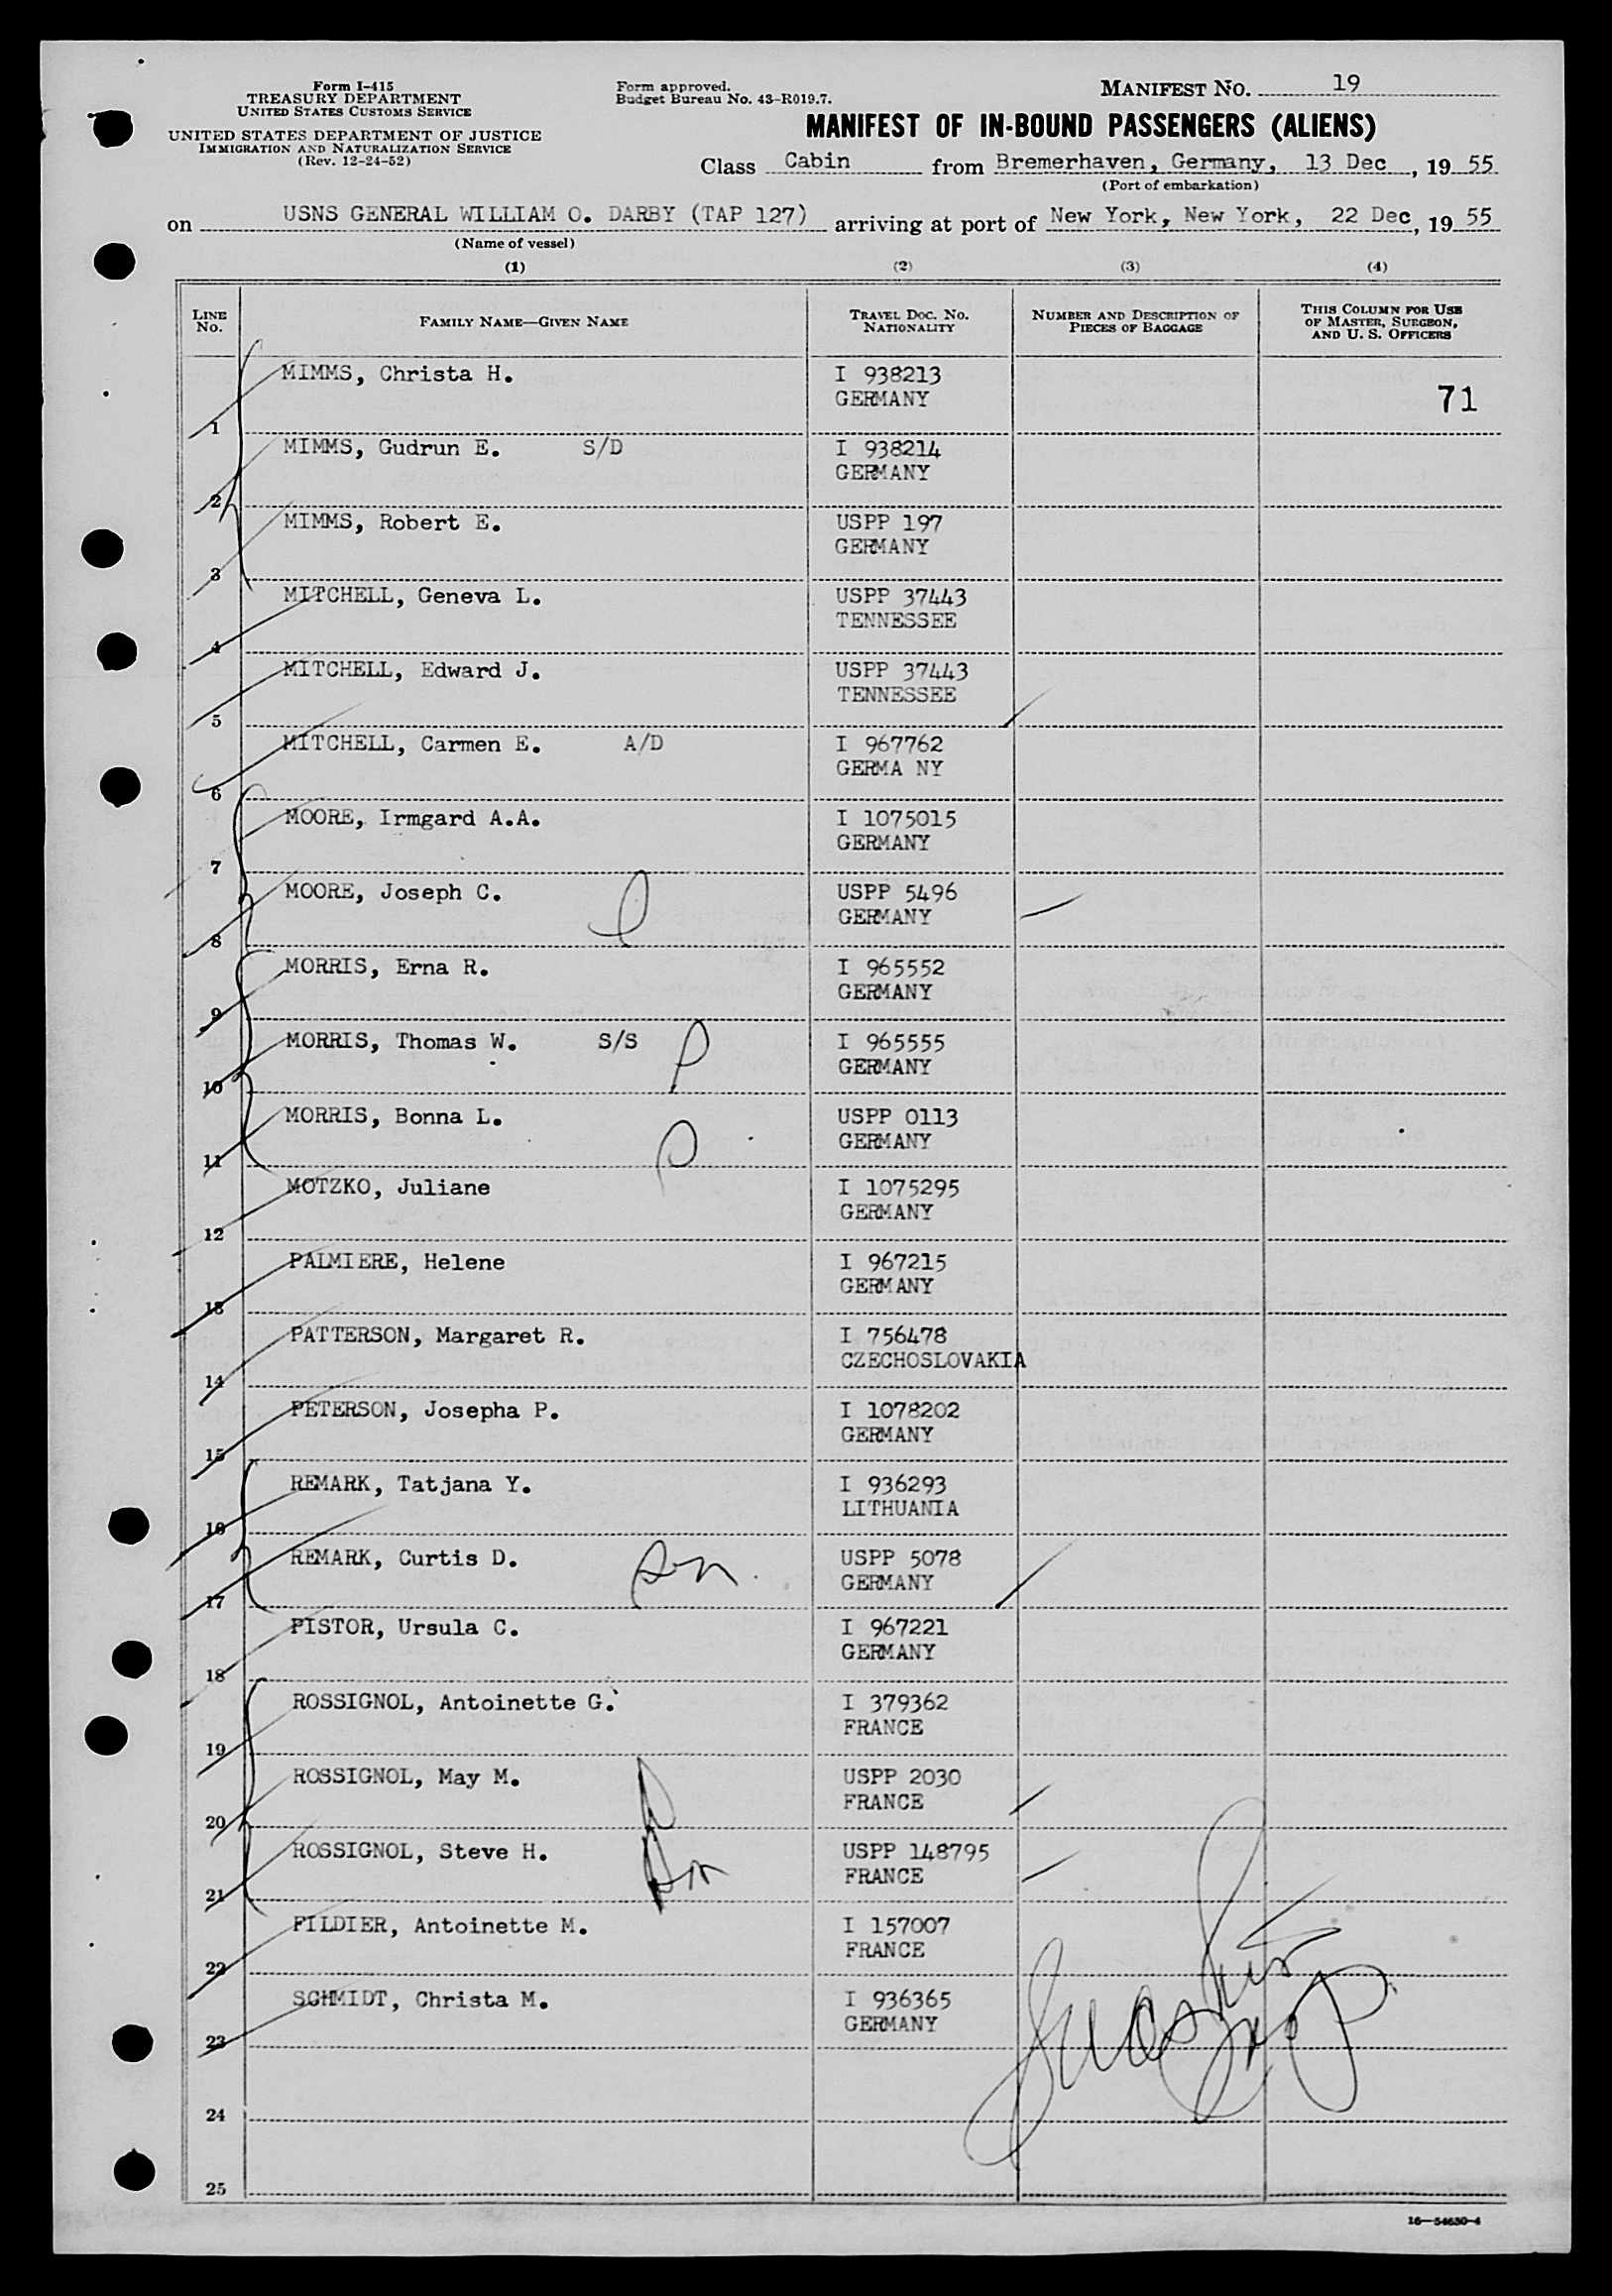 Form I-415
TREASURY DEPARTMENT
UNITED STATES CUSTOMS SERVICE
UNITED STATES DEPARTMENT OF JUSTICE
IMMIGRATION AND NATURALIZATION SERVICE
(Rev. 12-24-52)
Form approved.
Budget Bureau No. 43-R019.7.
MANIFEST NO. 19
MANIFEST OF IN-BOUND PASSENGERS (ALIENS)
Class Cabin from Bremerhaven, Germany, 13 Dec, 19 55
(Port of embarkation)
on USNS GENERAL WILLIAM O. DARBY (TAP 127) arriving at port of New York, New York, 22 Dec, 19 55
(Name of vessel)
(1) (2) (3) (4)
LINE NO. FAMILY NAME—GIVEN NAME TRAVEL DOC. NO. NATIONALITY NUMBER AND DESCRIPTION OF PIECES OF BAGGAGE THIS COLUMN FOR USE OF MASTER, SURGEON, AND U. S. OFFICERS
MIMMS, Christa H. I 938213
GERMANY 71
1
MIMMS, Gudrun E. S/D I 938214
GERMANY
2
MIMMS, Robert E. USPP 197
GERMANY
3
MITCHELL, Geneva L. USPP 37443
TENNESSEE
4
MITCHELL, Edward J. USPP 37443
TENNESSEE
5
MITCHELL, Carmen E. A/D I 967762
GERMA NY
6
MOORE, Irmgard A.A. I 1075015
GERMANY
7
MOORE, Joseph C. USPP 5496
GERMANY
8
MORRIS, Erna R. I 965552
GERMANY
9
MORRIS, Thomas W. S/S I 965555
GERMANY
10
MORRIS, Bonna L. USPP 0113
GERMANY
11
MOTZKO, Juliane I 1075295
GERMANY
12
PALMIERE, Helene I 967215
GERMANY
13
PATTERSON, Margaret R. I 756478
CZECHOSLOVAKIA
14
PETERSON, Josepha P. I 1078202
GERMANY
15
REMARK, Tatjana Y. I 936293
LITHUANIA
16
REMARK, Curtis D. son. USPP 5078
GERMANY
17
PISTOR, Ursula C. I 967221
GERMANY
18
ROSSIGNOL, Antoinette G. I 379362
FRANCE
19
ROSSIGNOL, May M. USPP 2030
FRANCE
20
ROSSIGNOL, Steve H. USPP 148795
FRANCE
21
FILDIER, Antoinette M. I 157007
FRANCE
22
SCHMIDT, Christa M. I 936365
GERMANY
23
24
25
16—54630-4